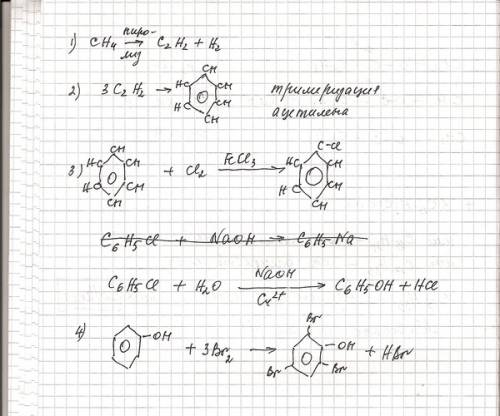 1) CH4 пиролиз → C2H2 + H2
2) 3C2H2 → CH HC CH HC CH CH тримеризация ацетилена
3) CH HC CH HC CH CH + Cl2 FeCl3 → C-Cl HC CH HC CH CH
C6H5Cl + NaOH → C6H5Na
C6H5Cl + H2O NaOH Cu2+ → C6H5OH + HCl
4) -OH + 3Br2 → Br -OH Br Br + HBr